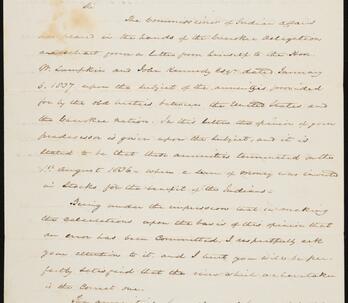 Sir
The Commissioner of Indian Affairs
has placed in the hands of the Cherokee delegation
a letter from himself to the Hon
W. Lumpkin and John Kennedy Esqrs dated January
6, 1837 upon the subject of the annuities provided
for by the old treaties between the United States and
the Cherokee nation. In this letter the opinion of your
predecessor is given upon the subject, and it is
stated to be that these annuities terminated on the
1st August 1836 – when a sum of money was invested
in Stocks for the benefit of the Indians –
Being under the impression that in making
the calculations upon the basis of this opinion that
an error has been Committed, I respectfully ask
your attention to it, and I trust you will be per-
fectly satisfied that the view which
is the Correct one.